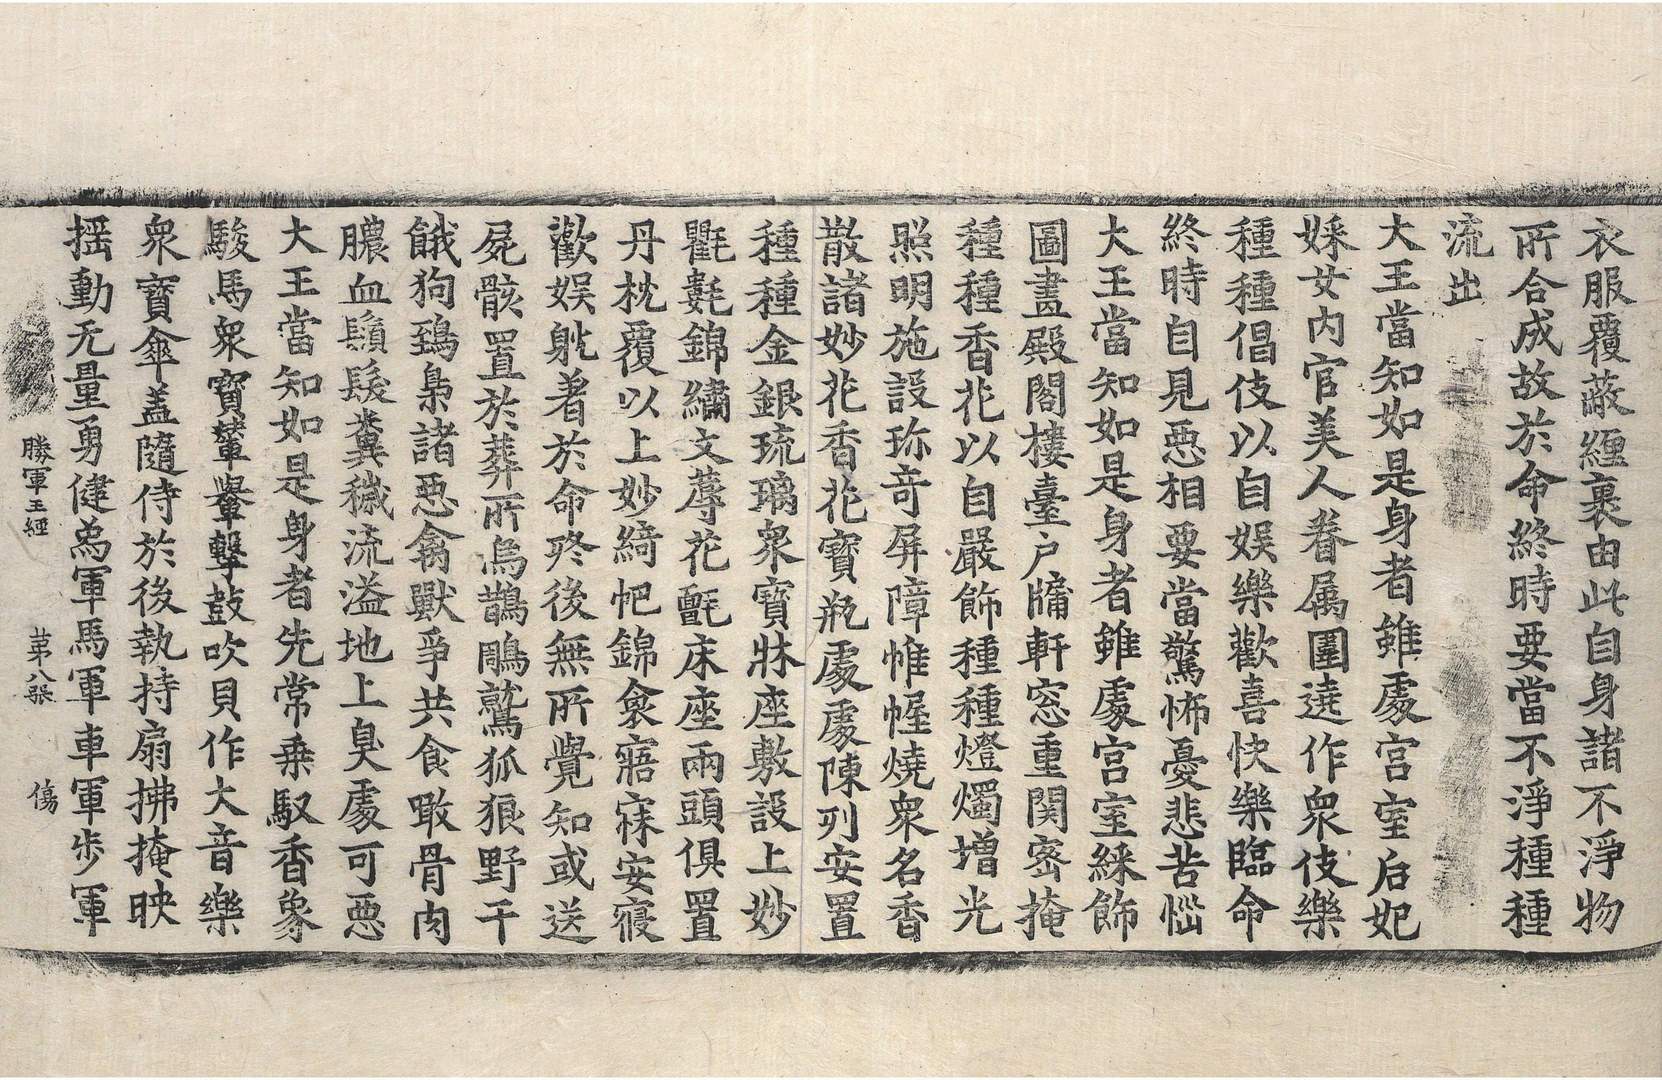 衣服覆蔽纏裹由此自身諸不淨物
所合成故於命終時要當不淨種種
流出
大王當知如是身者雖處宮室后妃
婇女内官美人眷属圍遶作衆伎樂
種種倡伎以自娱樂歡喜快樂臨命
終時自見悪相要當驚怖憂悲苦惱
大王當知如是身者雖處宮室綵飾
圖畫殿閣樓臺户牖軒窓重関密掩
種種香花以自嚴飾種種燈燭增光
照明施設珎竒屏障帷幄燒衆名香
散諸妙花香花寶瓶處處陳列安置
種種金銀琉璃衆寶牀座敷設上妙
氍㲣錦繡文蓐花氈床座兩頭俱置
丹枕覆以上妙綺帊錦衾寤寐安寢
歡娱躭著於命終後無所覺知或送
屍骸置於葬所烏鵲鵰鷲狐狼野干
餓狗鵄梟諸悪禽獸爭共食噉骨肉
膿血鬚髮糞穢流溢地上臭處可悪
大王當知如是身者先常乗馭香象
駿馬衆寶輦轝擊鼓吹貝作大音樂
衆寶傘盖隨侍於後執持扇拂掩映
摇動无量勇健爲軍馬軍車軍步軍
勝軍王經 苐八張 傷